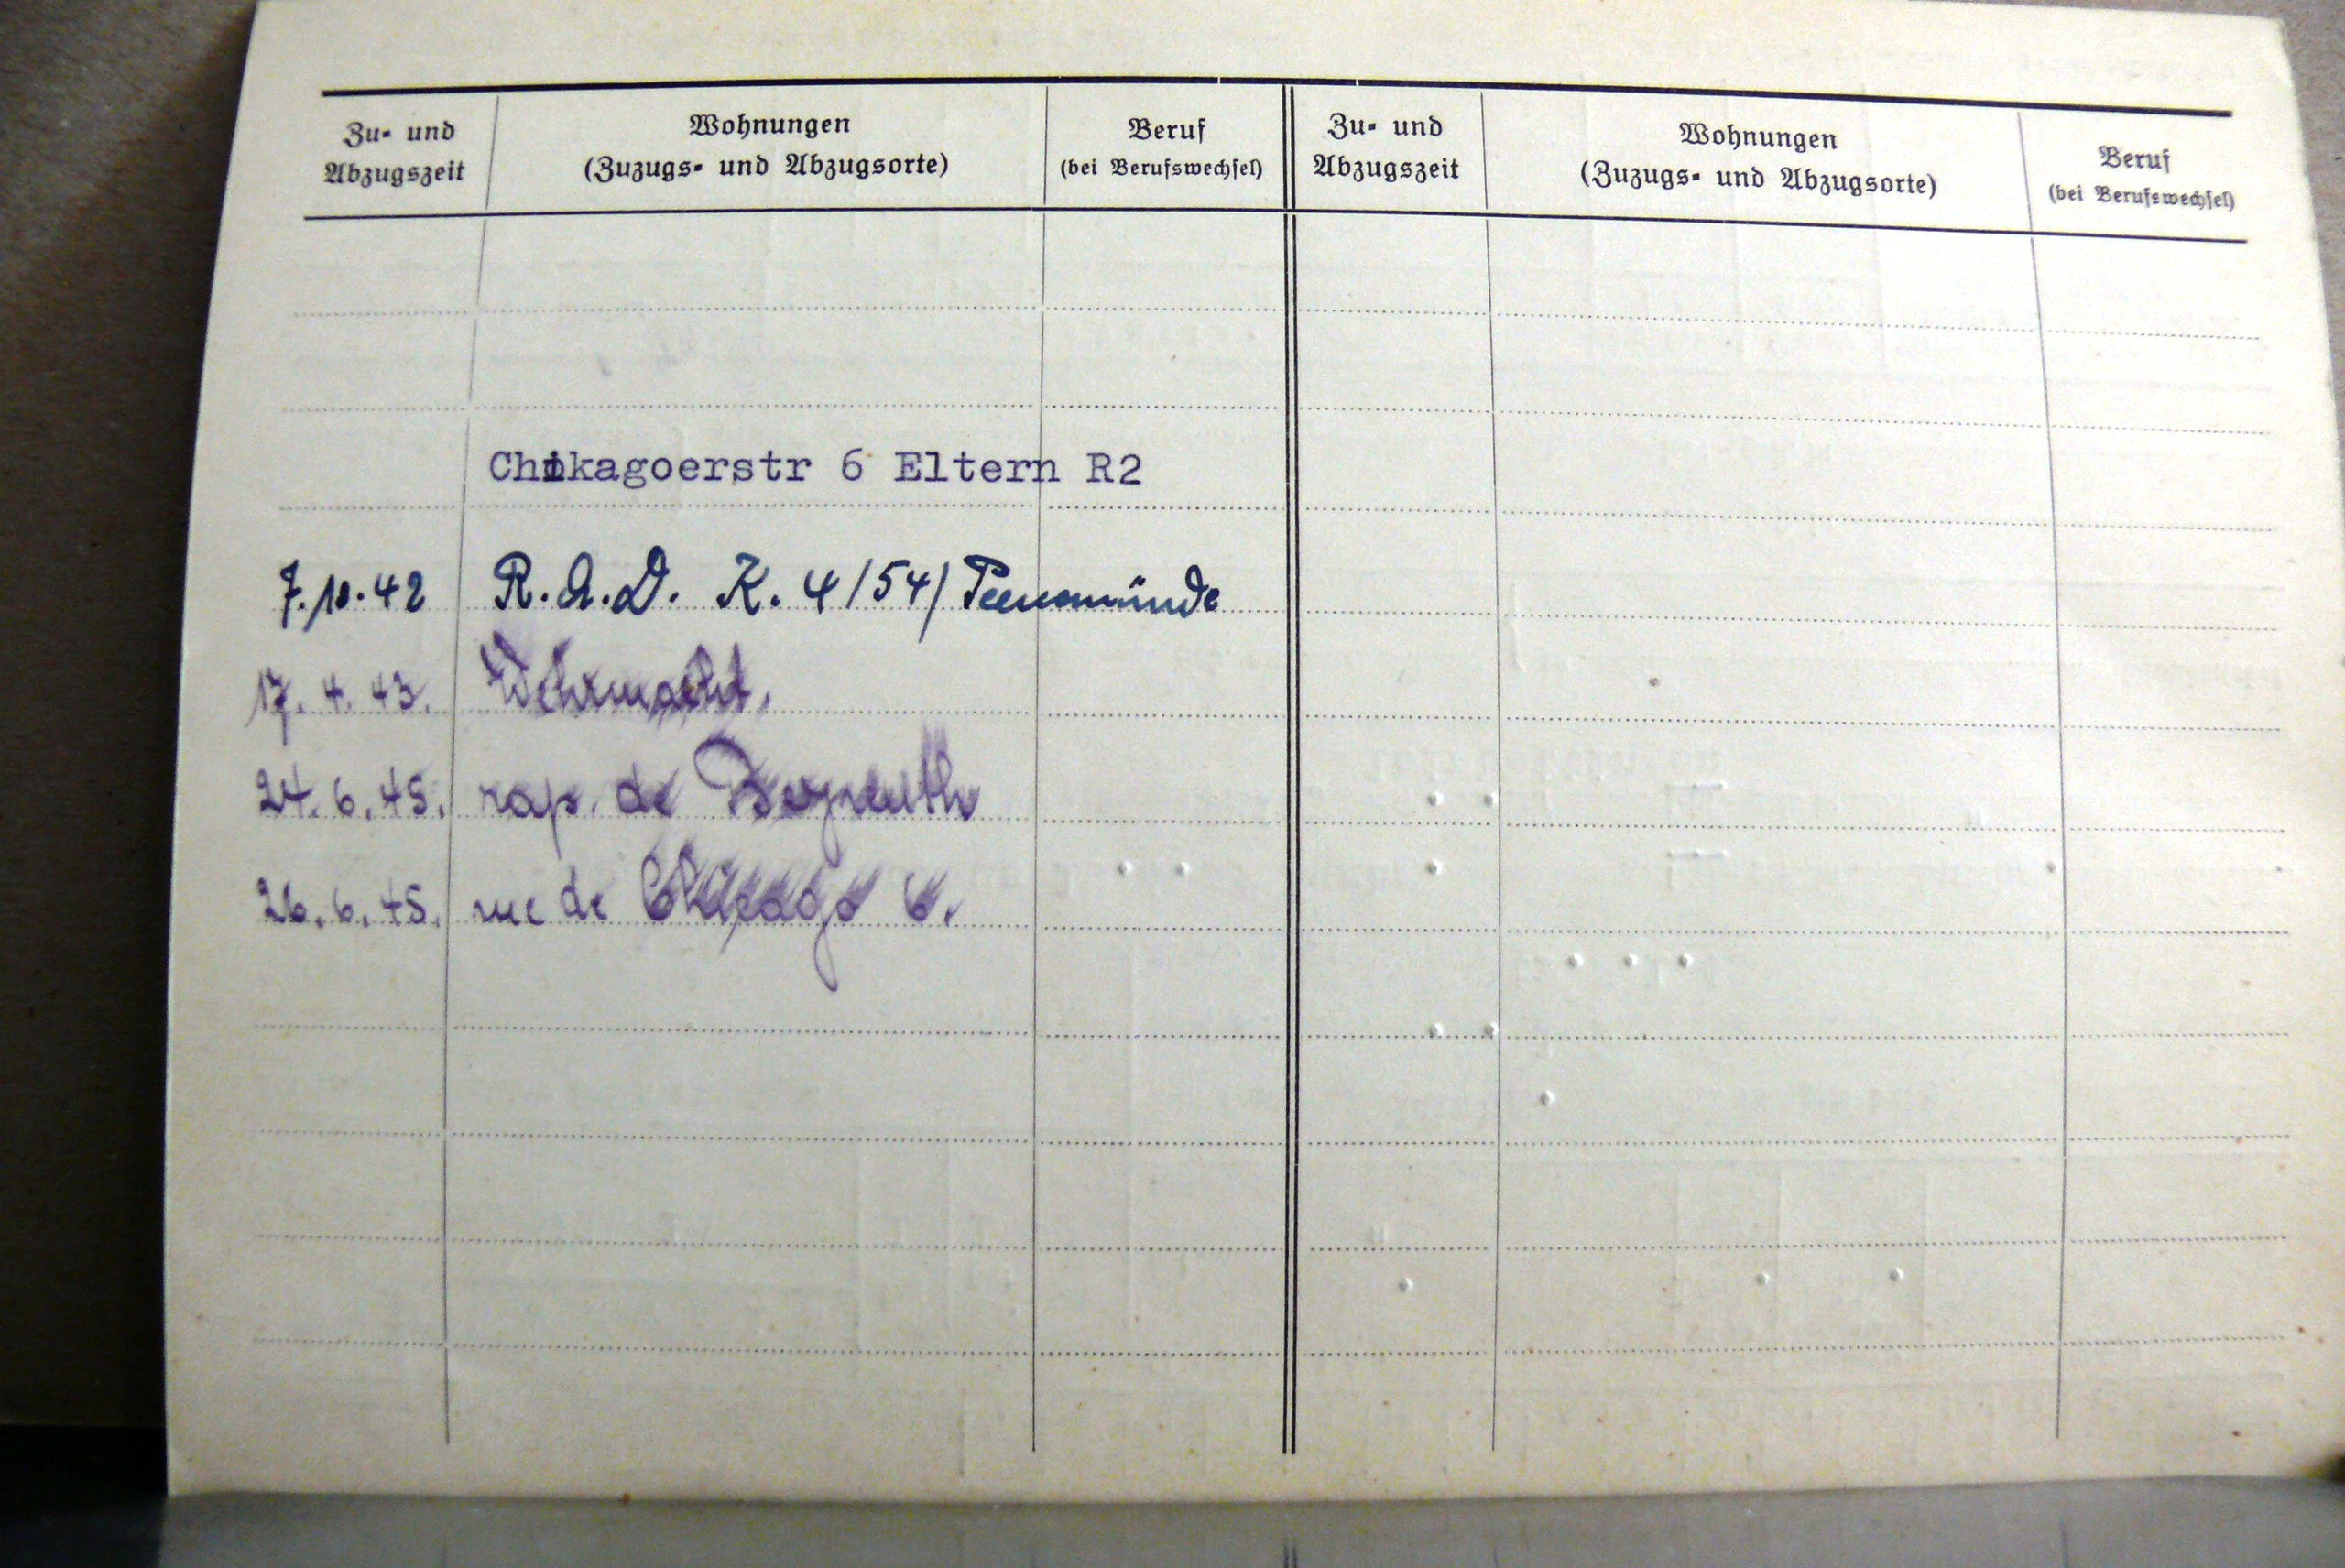 Zu- und
Abzugszeit
Wohnungen
(Zuzugs- und Abzugsorte)
Beruf
(bei Berufswechsel)
Zu- und
Abzugszeit
Wohnungen
(Zuzugs- und Abzugsorte)
Beruf
(bei Berufswechsel)
Chikagoerstr 6 Eltern R2
7.10.42 R.A.D. K. 4/54/ Peenemünde
17. 4. 43. Wehrmacht.
24. 6. 45. rap. de Bayreuth
26. 6. 45. rue de Chicago 6.